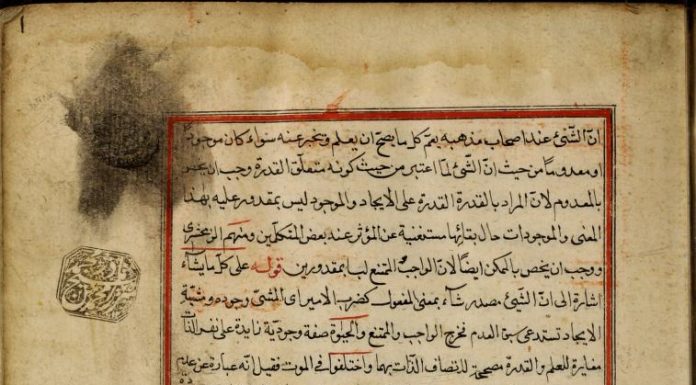 انّ الشّيئ عند اصحاب مذهبه يعمّ كل ما يصحّ ان يعلم ويخبر عنه سواء كان موجودًا
او معدومًا من حيث انّ الشّيئ لمّا اعتبر من حيث كونه متعلّق القدرة وجب ان
بالمعدوم لانّ المراد بالقدرة القدرة على الايجاد والموجود ليس بمقدور عليه بهذا
المعنى والموجودات حال بقائها مستغنية عن المؤثر عند بعض المتكلمين ومنهم الزمخشرى
ووجب ان يخص بالممكن ايضًا لانّ الواجب والممتنع ليسا بمقدورين قوله على كلّ ما يشآء
اشارة الى انّ الشّيئ مصدر شآء بمعنى المفعول كضرب الامير اى المشئ وجوده ومشيّة
الايجاد تستدعى سبق العدم فخرج الواجب والممتنع والحيوة صفة وجوديّة زايدة على نفس الذّات
مغايرة للعلم والقدرة مصحّحة لاتصاف الذّات بهما واختلفوا فى الموت فقيل انه عبارة عن